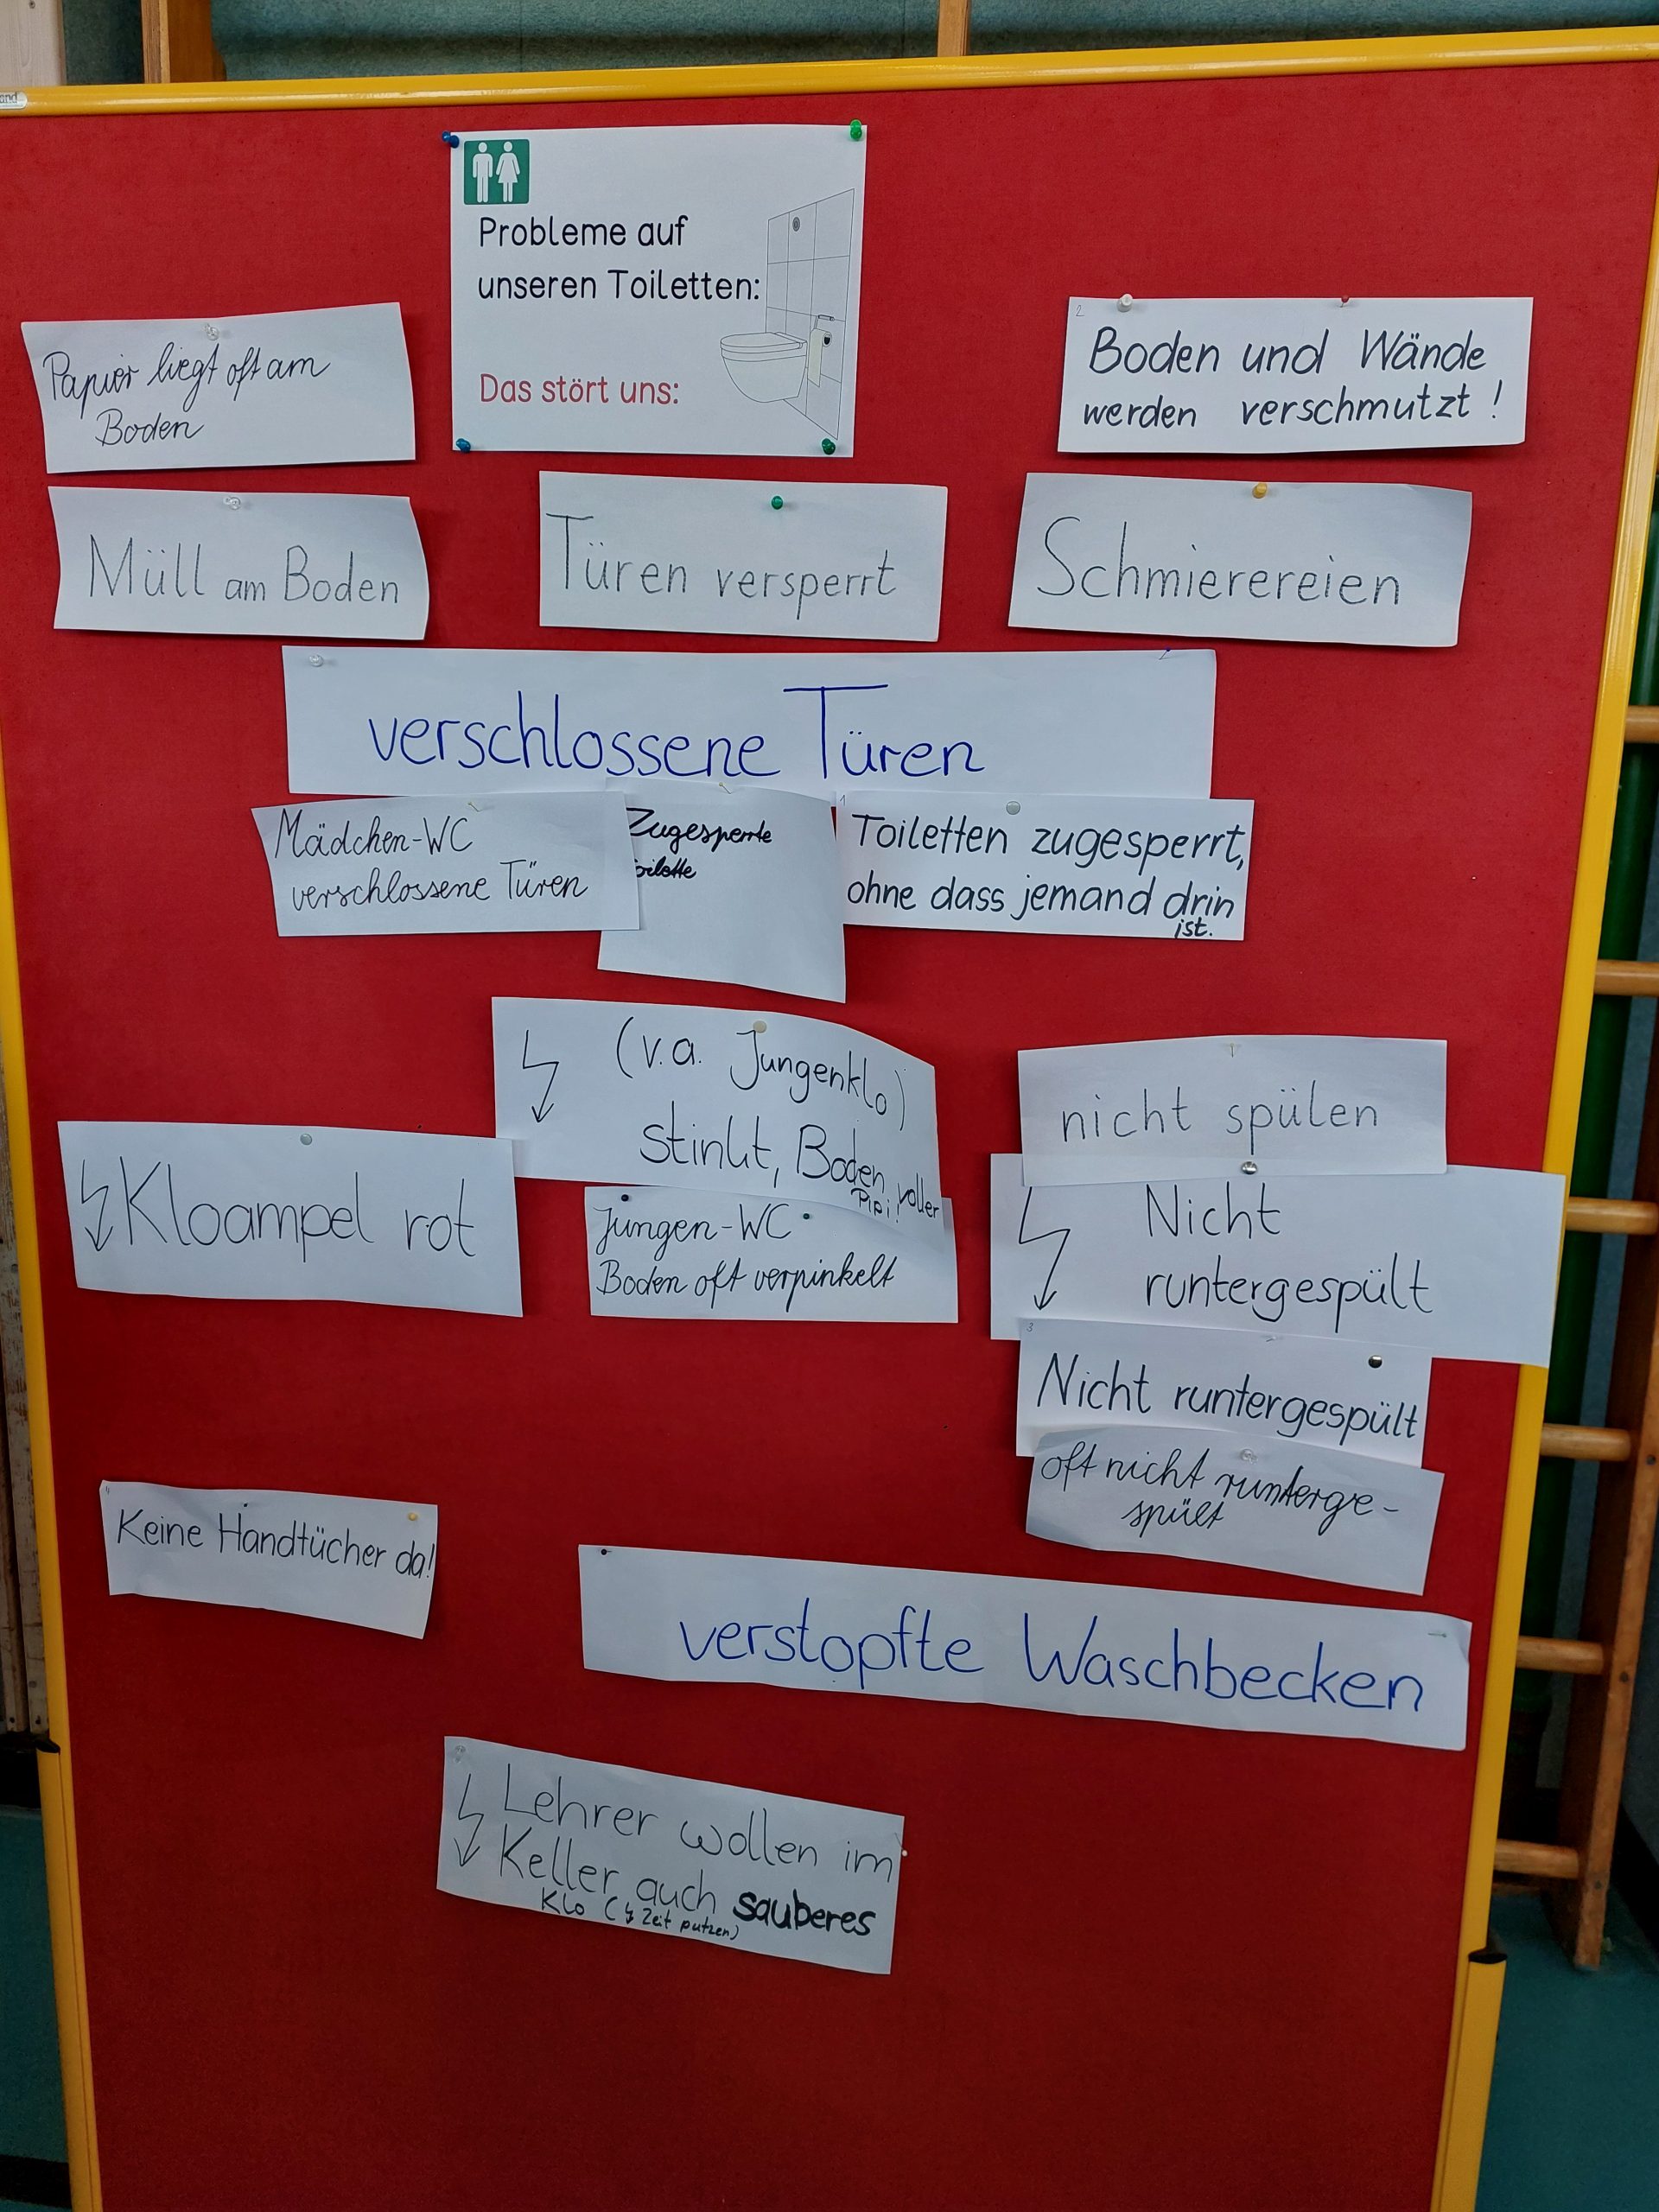 and
Probleme auf
unseren Toiletten:
Das stört uns:
Papier liegt oft am
Boden
2
Boden und Wände
werden verschmutzt!
Müll am Boden
Türen versperrt
Schmierereien
verschlossene Türen
Mädchen-WC
verschlossene Türen
Zugesperrte
oilette
1
Toiletten zugesperrt,
ohne dass jemand drin
ist.
(v.a. Jungenklo)
stinkt, Boden voller
Pipi!
Kloampel rot
Jungen-WC
Boden oft verpinkelt
nicht spülen
Nicht
runtergespült
3
Nicht runtergespült
oft nicht runterge-
spült
4
Keine Handtücher da!
verstopfte Waschbecken
Lehrer wollen im
Keller auch sauberes
Klo (↯ Zeit putzen)